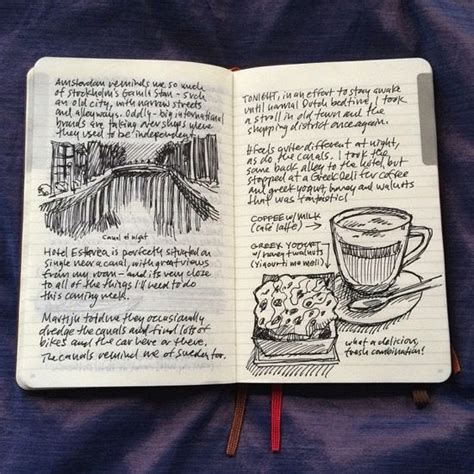 Amsterdam reminds me so much
of Stockholm's Gamla Stan - such
an old city, with narrow streets
and alleyways. Oddly - big international
brands are taking over shops where
they used to be independent.
Canal at night
Hotel Estherea is perfectly situated on
Singel near a canal, with great views
from my room - and its very close
to all of the things I'll need to do
this coming week.
Martijn told me they occasionally
dredge the canals and find lots of
bikes and the car here or there.
The canals remind me of Sweden too.
TONIGHT, in an effort to stay awake
until normal Dutch bedtime, I took
a stroll in old town and the
shopping district once again.
It feels quite different at night,
as do the canals. I took the
same back alley to the hotel, but
stopped at a Greek Deli for coffee
and greek yogurt, honey and walnuts
that was fantastic!
COFFEE w/ MILK
(café latte)
GREEK YOGURT
w/ honey + walnuts
(Yiaourti me meli)
what a delicious,
fresh combination!